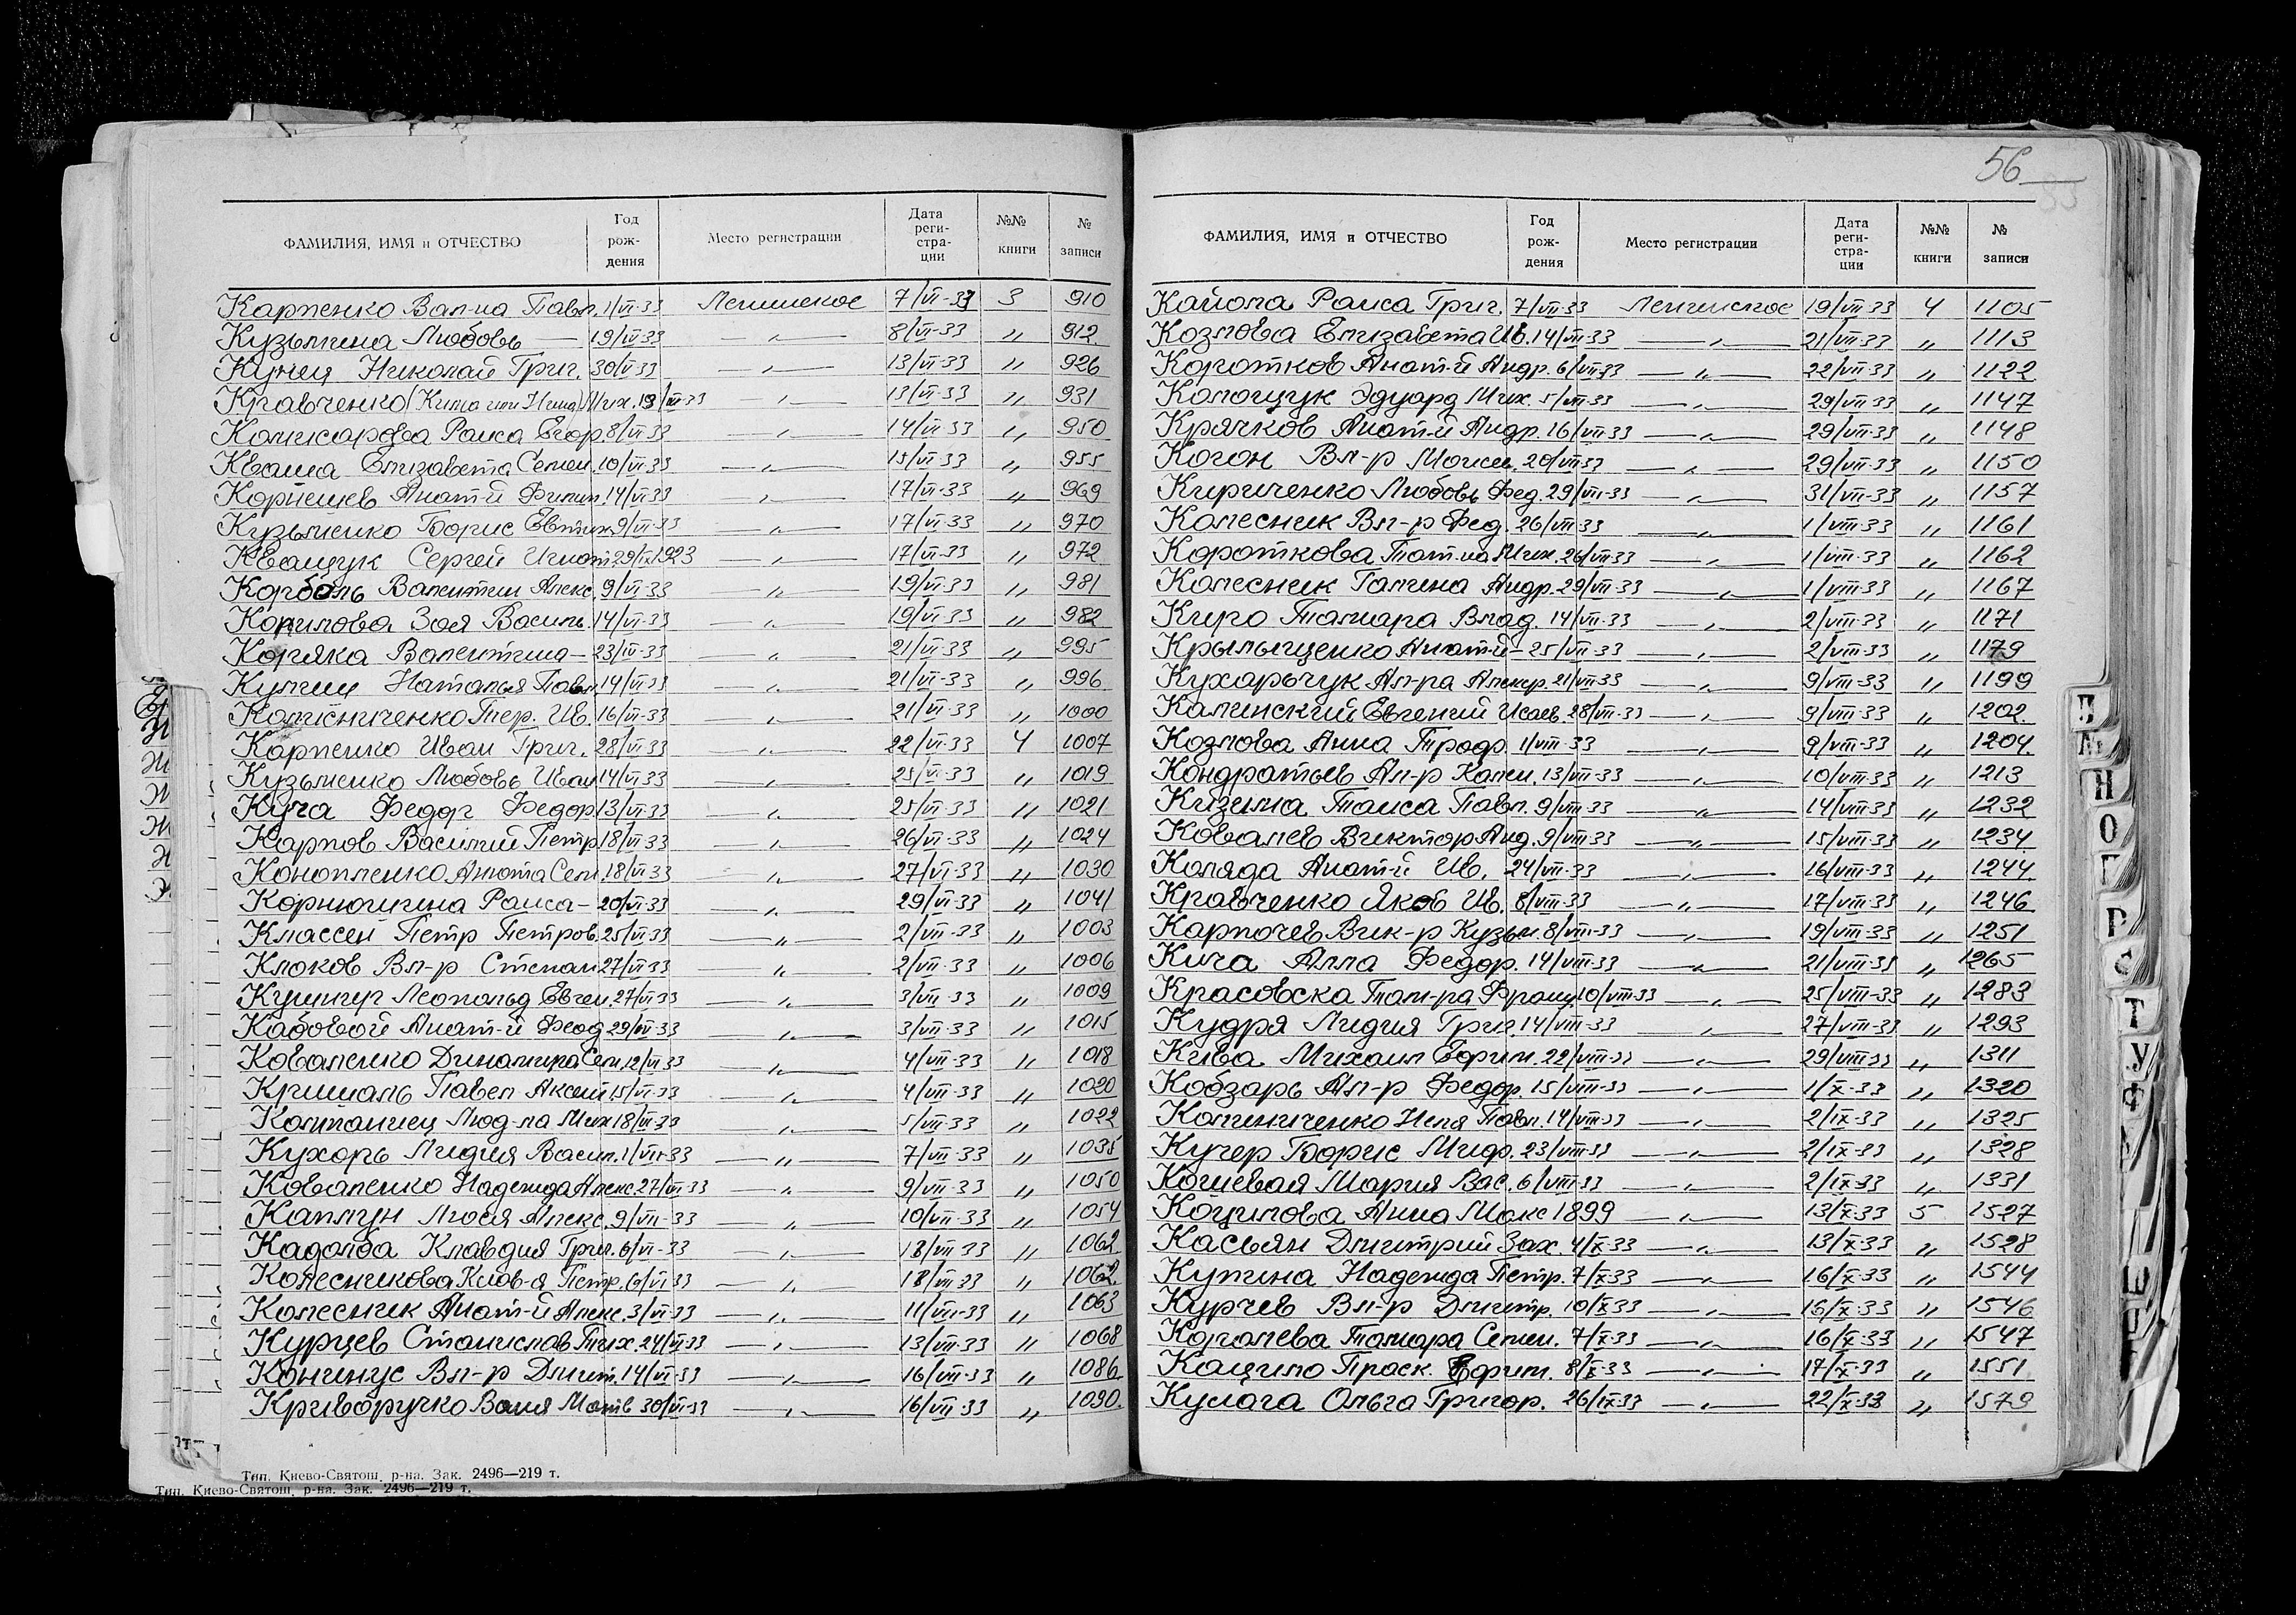 56
ФАМИЛИЯ, ИМЯ и ОТЧЕСТВО Год рож- дения Место регистрации Дата реги- стра- ции №№ книги № записи
Карпенко Вал-на Павл. 1/VI-33 Ленинское 7/VI-33 3 910
Кузьмина Любовь — 19/IV-33 — „ — 8/VI-33 „ 912
Кунец Николай Григ. 30/V-33 — „ — 13/VI-33 „ 926
Кравченко (Кима или Нина) Мих. 19/III-33 — „ — 13/VI-33 „ 931
Комисарова Раиса Егор. 8/VI-33 — „ — 14/VI-33 „ 950
Кваша Елизавета Семен. 10/VI-33 — „ — 15/VI-33 „ 955
Корнешев Анат-й Филип. 14/VI-33 — „ — 17/VI-33 „ 969
Кузьменко Борис Евтих. 9/VI-33 — „ — 17/VI-33 „ 970
Кващук Сергей Игнат. 29/IX 1923 — „ — 17/VI-33 „ 972
Корболь Валентин Алекс. 9/VI-33 — „ — 19/VI-33 „ 981
Копилова Зоя Василь. 14/VI-33 — „ — 19/VI-33 „ 982
Коряка Валентина — 23/IV-33 — „ — 21/VI-33 „ 995
Кулиш Наталья Павл. 14/VI-33 — „ — 21/VI-33 „ 996
Колісниченко Тер. Ив. 16/VI-33 — „ — 21/VI-33 „ 1000
Карпенко Иван Григ. 28/VI-33 — „ — 22/VI-33 4 1007
Кузьменко Любовь Иван 14/VI-33 — „ — 25/VI-33 „ 1019
Куча Федор Федор. 13/VI-33 — „ — 25/VI-33 „ 1021
Карпов Василий Петр 18/VI-33 — „ — 26/VI-33 „ 1024
Конопленко Анюта Сем. 18/VI-33 — „ — 27/VI-33 „ 1030
Корнюшина Раиса — 20/VI-33 — „ — 29/VI-33 „ 1041
Классен Петр Петров. 25/VI-33 — „ — 2/VII-33 „ 1003
Клоков Вл-р Степан 27/VI-33 — „ — 2/VII-33 „ 1006
Кушнир Леопольд Евген. 27/VI-33 — „ — 3/VII-33 „ 1009
Кабовой Анат-й Феод 29/VI-33 — „ — 3/VII-33 „ 1015
Коваленко Динамира Сем. 12/VI-33 — „ — 4/VII-33 „ 1018
Кришталь Павел Аксент. 15/VI-33 — „ — 4/VII-33 „ 1020
Колтанец Люд-ла Мих 18/VI-33 — „ — 5/VII-33 „ 1022
Кухарь Лидия Васил. 1/VII-33 — „ — 7/VII-33 „ 1035
Коваленко Надежда Алекс. 27/VI-33 — „ — 9/VII-33 „ 1050
Каплун Люся Алекс. 9/VII-33 — „ — 10/VII-33 „ 1054
Кадолба Клавдия Григ. 6/VI-33 — „ — 18/VII-33 „ 1062
Колесникова Клав-я Петр. 6/VI-33 — „ — 18/VII-33 „ 1062
Колесник Анат-й Алекс. 3/VII-33 — „ — 11/VII-33 „ 1063
Курцев Станислав Тих. 24/VI-33 — „ — 13/VII-33 „ 1068
Конинус Вл-р Дмит. 14/VI-33 — „ — 16/VII-33 „ 1086
Криворучко Ваня Матв 30/VI-33 — „ — 16/VII-33 „ 1090.
Тип. Киево-Святош. р-на. Зак. 2496—219 т.
Тип. Киево-Святош. р-на. Зак. 2496—219 т.
ФАМИЛИЯ, ИМЯ и ОТЧЕСТВО Год рож- дения Место регистрации Дата реги- стра- ции №№ книги № записи
Кайола Раиса Григ. 7/VII-33 Ленинское 19/VII-33 4 1105
Козлова Елизавета Ив. 14/VII-33 — „ — 21/VII-33 „ 1113
Коротков Анат-й Андр. 6/VII-33 — „ — 22/VII-33 „ 1122
Колощук Эдуард Мих. 5/VII-33 — „ — 29/VII-33 „ 1147
Крячков Анат-й Андр. 16/VII-33 — „ — 29/VII-33 „ 1148
Когон Вл-р Моисе. 20/VII-33 — „ — 29/VII-33 „ 1150
Кириченко Любовь Фед. 29/VII-33 — „ — 31/VII-33 „ 1157
Колесник Вл-р Фед. 26/VII-33 — „ — 1/VIII-33 „ 1161
Короткова Тат-на Мих. 26/VII-33 — „ — 1/VIII-33 „ 1162
Колесник Галина Андр. 29/VII-33 — „ — 1/VIII-33 „ 1167
Киро Тамара Влад. 14/VII-33 — „ — 2/VIII-33 „ 1171
Крылыщенко Анат-й — 25/VII-33 — „ — 2/VIII-33 „ 1179
Кухарьчук Ал-ра Алекр. 21/VII-33 — „ — 9/VIII-33 „ 1199
Калинский Евгений Исаев. 28/VII-33 — „ — 9/VIII-33 „ 1202
Козлова Анна Трофр. 1/VIII-33 — „ — 9/VIII-33 „ 1204
Кондратьев Ал-р Калин. 13/VIII-33 — „ — 10/VIII-33 „ 1213
Кизима Таиса Павл. 9/VIII-33 — „ — 14/VIII-33 „ 1232
Ковалев Виктор Анд. 9/VIII-33 — „ — 15/VIII-33 „ 1234
Коляда Анат-й Ив. 24/VII-33 — „ — 16/VIII-33 „ 1244
Кравченко Яков Ив. 8/VIII-33 — „ — 17/VIII-33 „ 1246
Карпочев Вик-р Кузьм. 8/VIII-33 — „ — 19/VIII-33 „ 1251
Кича Алла Федор. 14/VIII-33 — „ — 21/VIII-33 „ 1265
Красовска Там-ра Франц. 10/VIII-33 — „ — 25/VIII-33 „ 1283
Кудря Лидия Григ. 14/VIII-33 „ 27/VIII-33 „ 1293
Кива Михаил Ефрим. 22/VIII-33 — „ — 29/VIII-33 „ 1311
Кобзарь Ал-р Федор. 15/VIII-33 — „ — 1/IX-33 „ 1320
Калиниченко Неля Павл. 14/VIII-33 — „ — 2/IX-33 „ 1325
Кучер Борис Мифр. 23/VIII-33 — „ — 2/IX-33 „ 1328
Кошевая Мария Вас. 6/VIII-33 — „ — 2/IX-33 „ 1331
Коцилова Анна Макс 1899 — „ — 13/X-33 5 1527
Касьян Дмитрий Зах. 4/X-33 — „ — 13/X-33 „ 1528
Купина Надежда Петр. 7/X-33 — „ — 16/X-33 „ 1544
Курчев Вл-р Дмитр. 10/X-33 — „ — 16/X-33 „ 1546
Королева Тамара Семен. 7/X-33 — „ — 16/X-33 „ 1547
Кацило Праск. Ефрим. 8/X-33 — „ — 17/X-33 „ 1551
Кулага Ольга Григор. 26/IX-33 — „ — 22/X-33 „ 1579
Н
О
П
Р
С
Т
У
Ф
Ш